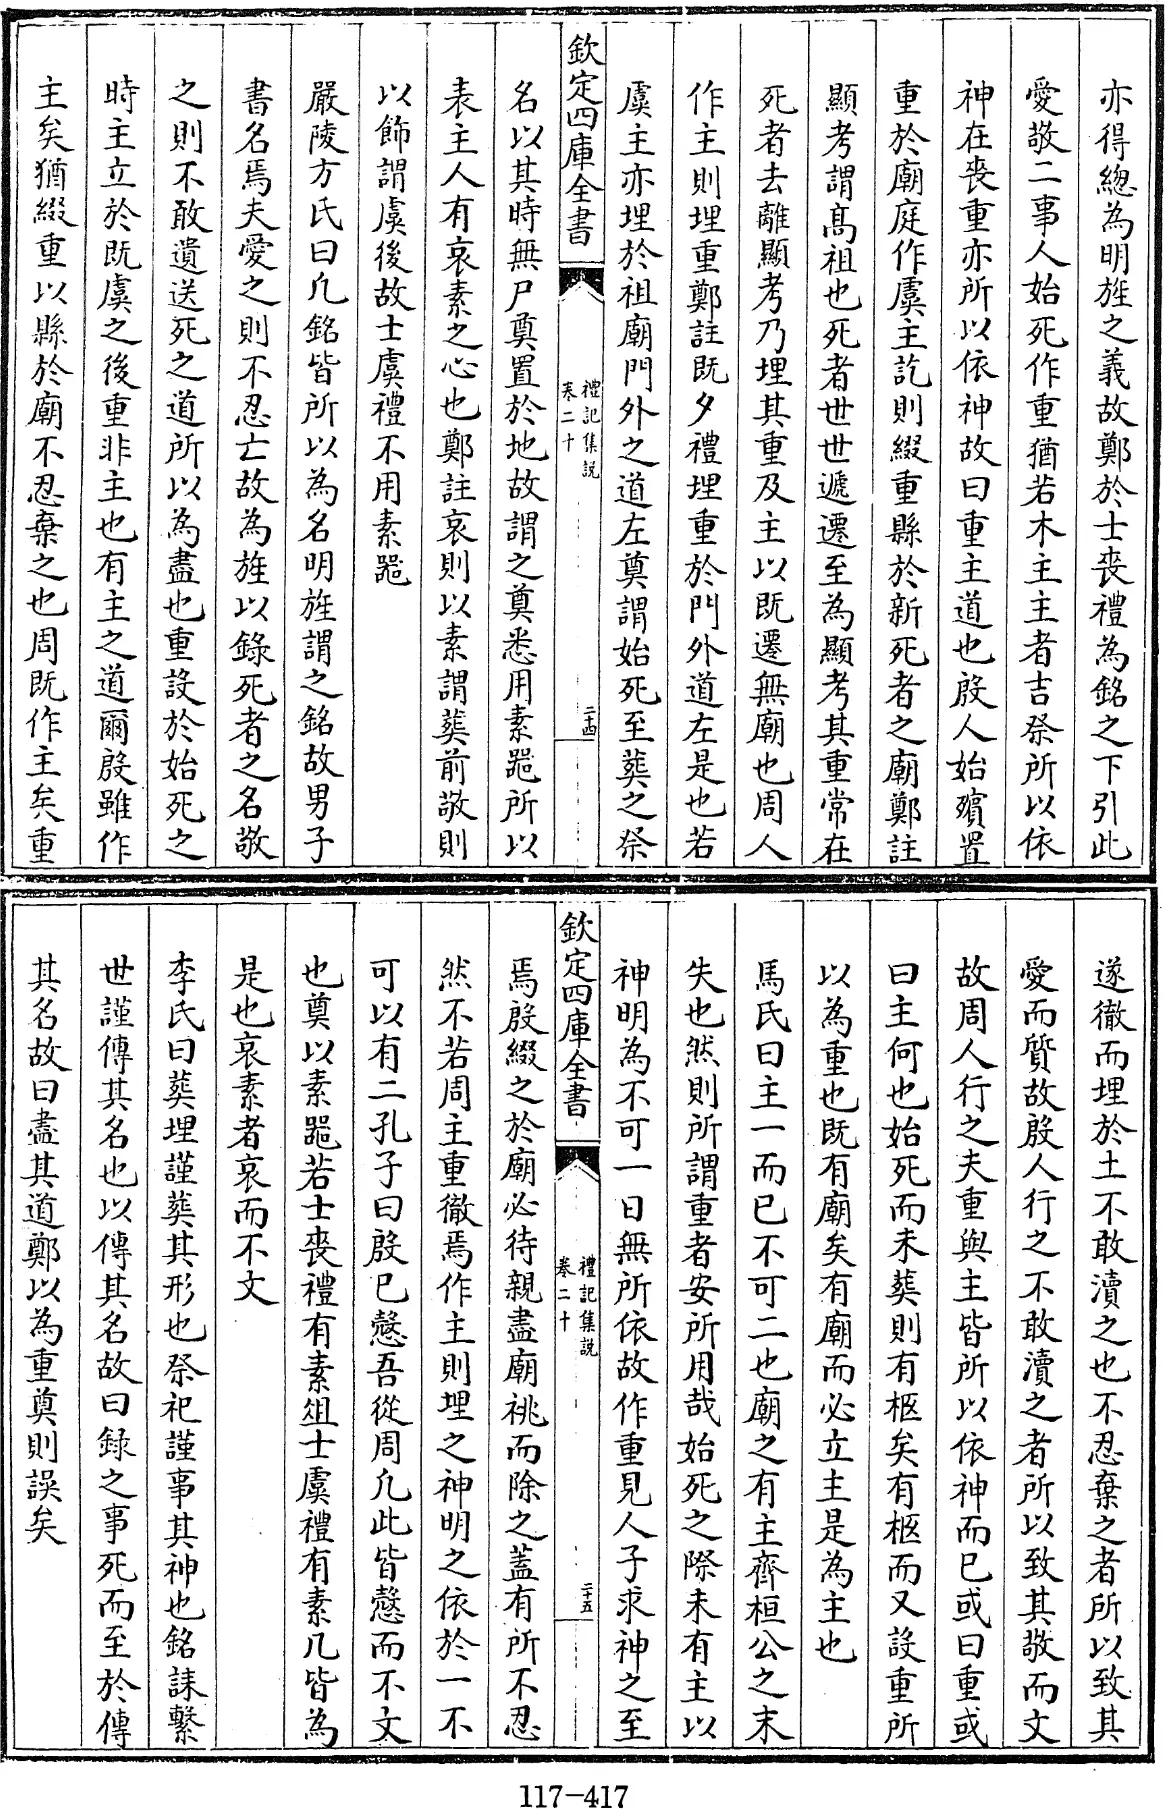 亦得總為明旌之義故鄭於士喪禮為銘之下引此
愛敬二事人始死作重猶若木主主者吉祭所以依
神在喪重亦所以依神故曰重主道也殷人始殯置
重於廟庭作虞主訖則綴重縣於新死者之廟鄭註
顯考謂高祖也死者世世遞遷至為顯考其重常在
死者去離顯考乃埋其重及主以既遷無廟也周人
作主則埋重鄭註既夕禮埋重於門外道左是也若
虞主亦埋於祖廟門外之道左奠謂始死至葬之祭
欽定四庫全書
禮記集說
卷二十
二十四
名以其時無尸奠置於地故謂之奠悉用素噐所以
表主人有哀素之心也鄭註哀則以素謂葬前敬則
以飾謂虞後故士虞禮不用素噐
嚴陵方氏曰凡銘皆所以為名明旌謂之銘故男子
書名焉夫愛之則不忍亡故為旌以錄死者之名敬
之則不敢遺送死之道所以為盡也重設於始死之
時主立於既虞之後重非主也有主之道爾殷雖作
主矣猶綴重以縣於廟不忍棄之也周既作主矣重
遂徹而埋於土不敢瀆之也不忍棄之者所以致其
愛而質故殷人行之不敢瀆之者所以致其敬而文
故周人行之夫重與主皆所以依神而已或曰重或
曰主何也始死而未葬則有柩矣有柩而又設重所
以為重也既有廟矣有廟而必立主是為主也
馬氏曰主一而已不可二也廟之有主齊桓公之末
失也然則所謂重者安所用哉始死之際未有主以
神明為不可一日無所依故作重見人子求神之至
欽定四庫全書
禮記集說
卷二十
二十五
焉殷綴之於廟必待親盡廟祧而除之蓋有所不忍
然不若周主重徹焉作主則埋之神明之依於一不
可以有二孔子曰殷已慤吾從周凡此皆慤而不文
也奠以素噐若士喪禮有素俎士虞禮有素几皆為
是也哀素者哀而不文
李氏曰葬埋謹葬其形也祭祀謹事其神也銘誄繫
世謹傳其名也以傳其名故曰録之事死而至於傳
其名故曰盡其道鄭以為重奠則誤矣
117-417